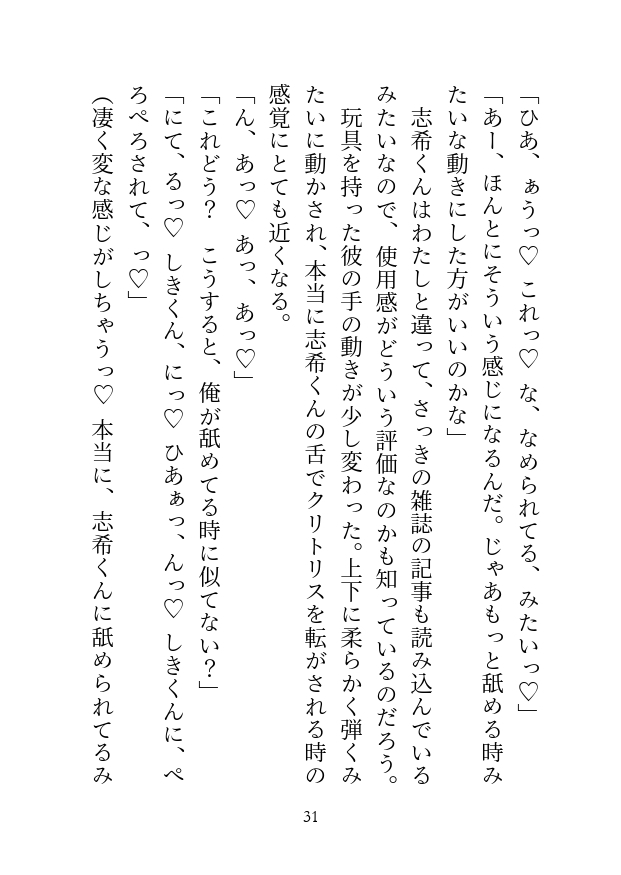 「ひあ、ぁうっ♡ これっ♡ な、なめられてる、みたいっ♡」
「あー、ほんとにそういう感じになるんだ。じゃあもっと舐める時み
たいな動きにした方がいいのかな」
　志希くんはわたしと違って、さっきの雑誌の記事も読み込んでいる
みたいなので、使用感がどういう評価なのかも知っているのだろう。
　玩具を持った彼の手の動きが少し変わった。上下に柔らかく弾くみ
たいに動かされ、本当に志希くんの舌でクリトリスを転がされる時の
感覚にとても近くなる。
「ん、あっ♡ あっ、あっ♡」
「これどう？　こうすると、俺が舐めてる時に似てない？」
「にて、るっ♡ しきくん、にっ♡ ひあぁっ、んっ♡ しきくんに、ぺ
ろぺろされて、っ♡」
（凄く変な感じがしちゃうっ♡ 本当に、志希くんに舐められてるみ
31